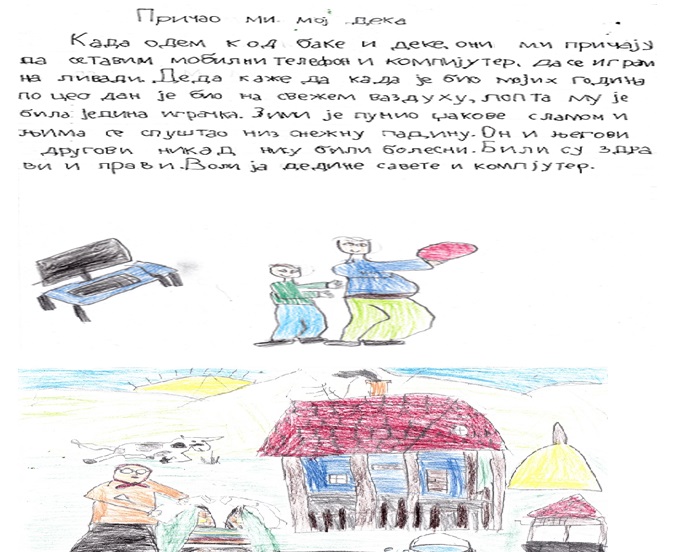 Причао ми мој дека
Када одем код баке и деке, они ми причају
да оставим мобилни телефон и компијутер, да се играм
на ливади. Деда каже да када је био мојих година
по цео дан је био на свежем ваздуху, лопта му је
била једина играчка. Зими је пунио џакове сламом и
њима се спуштао низ снежну падину. Он и његови
другови никад нису били болесни. Били су здра
ви и прави. Воли ја дедине савете и компјутер.